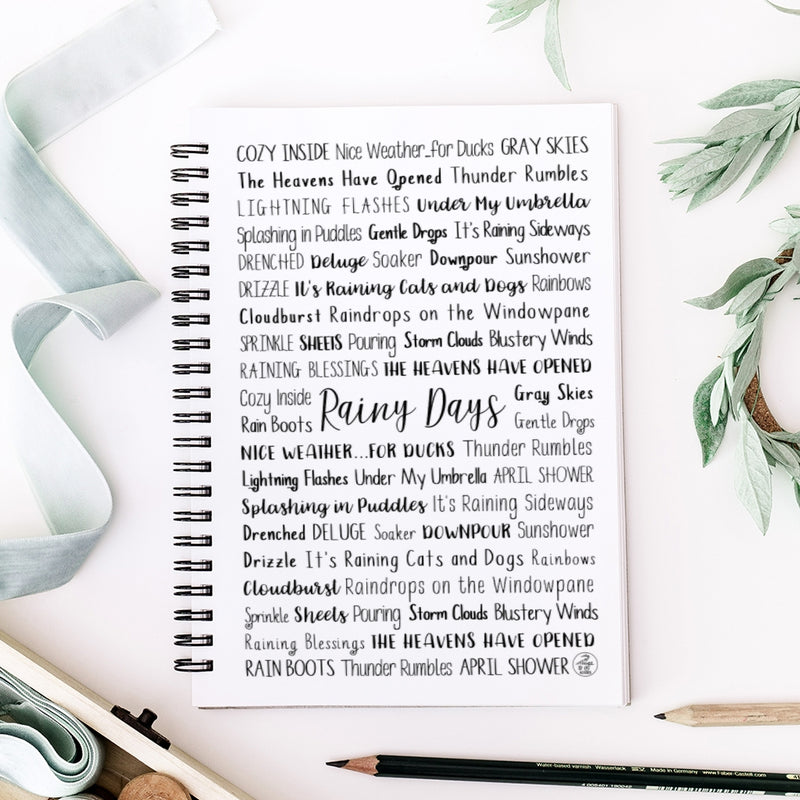 COZY INSIDE Nice Weather...for Ducks GRAY SKIES
The Heavens Have Opened Thunder Rumbles
LIGHTNING FLASHES Under My Umbrella
Splashing in Puddles Gentle Drops It's Raining Sideways
DRENCHED Deluge Soaker Downpour Sunshower
DRIZZLE It's Raining Cats and Dogs Rainbows
Cloudburst Raindrops on the Windowpane
SPRINKLE SHEETS Pouring Storm Clouds Blustery Winds
RAINING BLESSINGS THE HEAVENS HAVE OPENED
Cozy Inside
Rain Boots
Rainy Days
Gray Skies
Gentle Drops
NICE WEATHER...FOR DUCKS Thunder Rumbles
Lightning Flashes Under My Umbrella APRIL SHOWER
Splashing in Puddles It's Raining Sideways
Drenched DELUGE Soaker DOWNPOUR Sunshower
Drizzle It's Raining Cats and Dogs Rainbows
Cloudburst Raindrops on the Windowpane
Sprinkle Sheets Pouring Storm Clouds Blustery Winds
Raining Blessings THE HEAVENS HAVE OPENED
RAIN BOOTS Thunder Rumbles APRIL SHOWER
Water-based varnish Wasserlack Made in Germany www.Faber-Castell.com